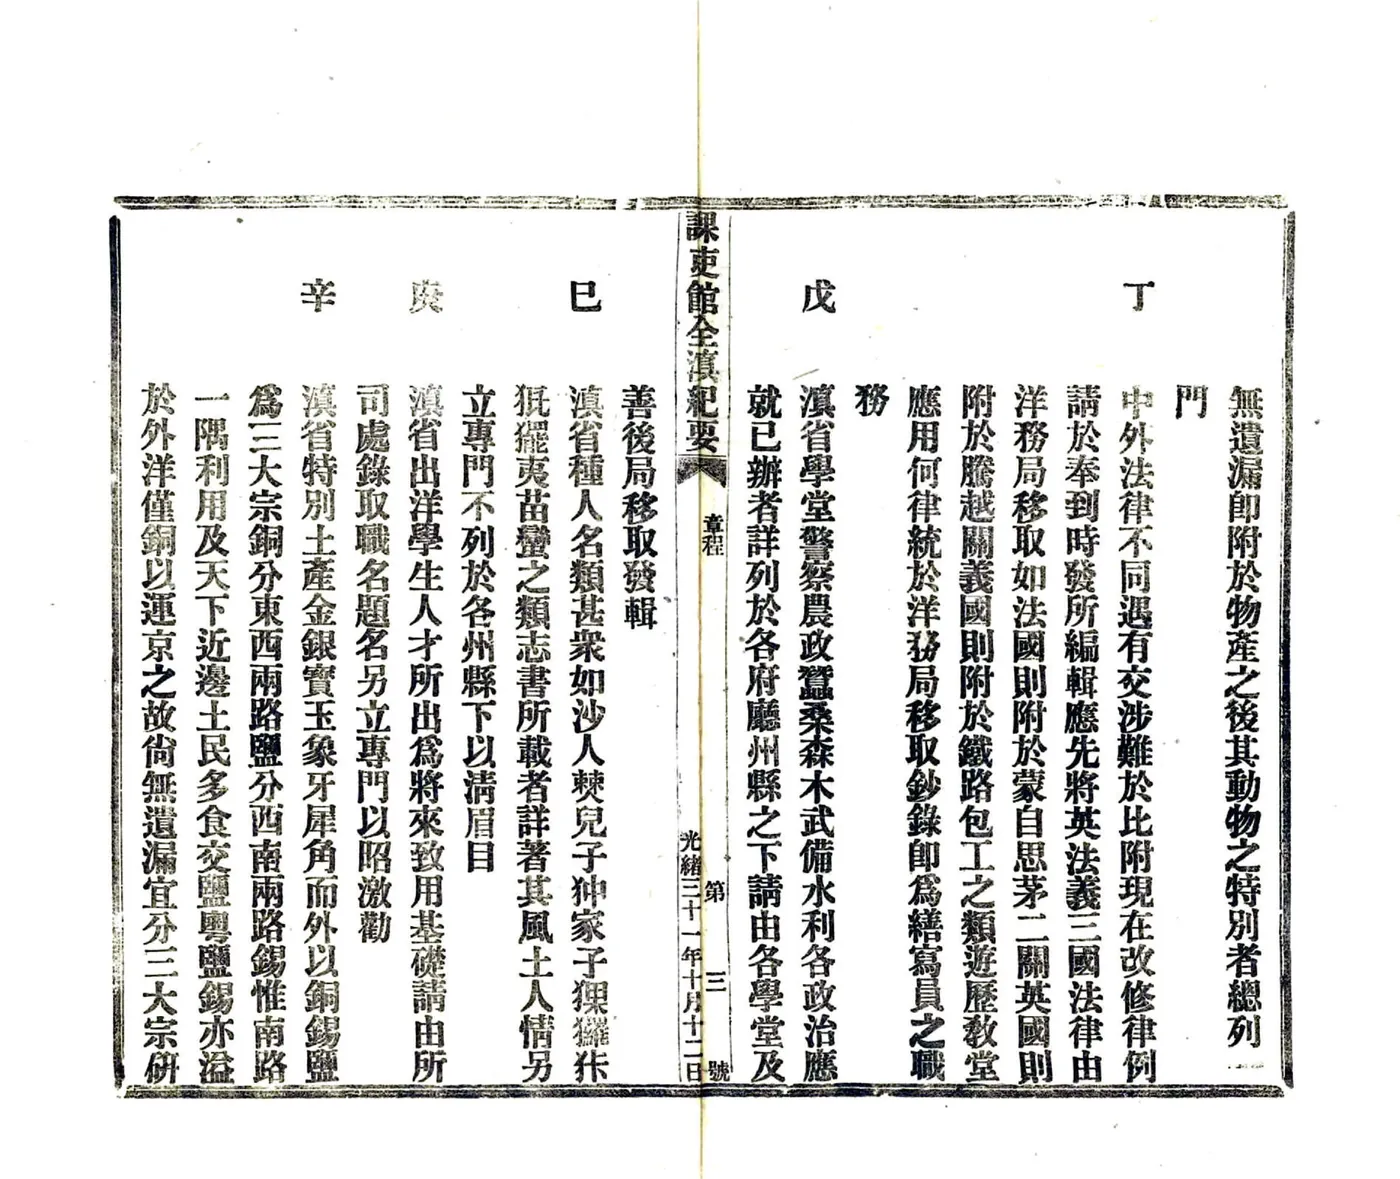 無遺漏卽附於物產之後其動物之特別者總列一
門
丁
中外法律不同遇有交涉難於比附現在改修律例
請於奉到時發所編輯應先將英法義三國法律由
洋務局移取如法國則附於蒙自思茅二關英國則
附於騰越關義國則附於鐵路包工之類遊歷敎堂
應用何律統於洋務局移取鈔錄卽爲繕寫員之職
務
戊
滇省學堂警察農政蠶桑森木武備水利各政治應
就已辦者詳列於各府廳州縣之下請由各學堂及
課吏館全滇紀要
章程
第三號
光緒三十一年十月廿二日
善後局移取發輯
巳
滇省種人名類甚衆如沙人㒍兒子狆家子猓玀㹀
㹝擺夷苗蠻之類志書所載者詳著其風土人情另
立專門不列於各州縣下以淸眉目
庚
滇省出洋學生人才所出爲將來致用基礎請由所
司處錄取職名題名另立專門以昭激勸
辛
滇省特別土產金銀寶玉象牙犀角而外以銅錫鹽
爲三大宗銅分東西兩路鹽分西南兩路錫惟南路
一隅利用及天下近邊土民多食交鹽粵鹽錫亦溢
於外洋僅銅以運京之故尙無遺漏宜分三大宗硏